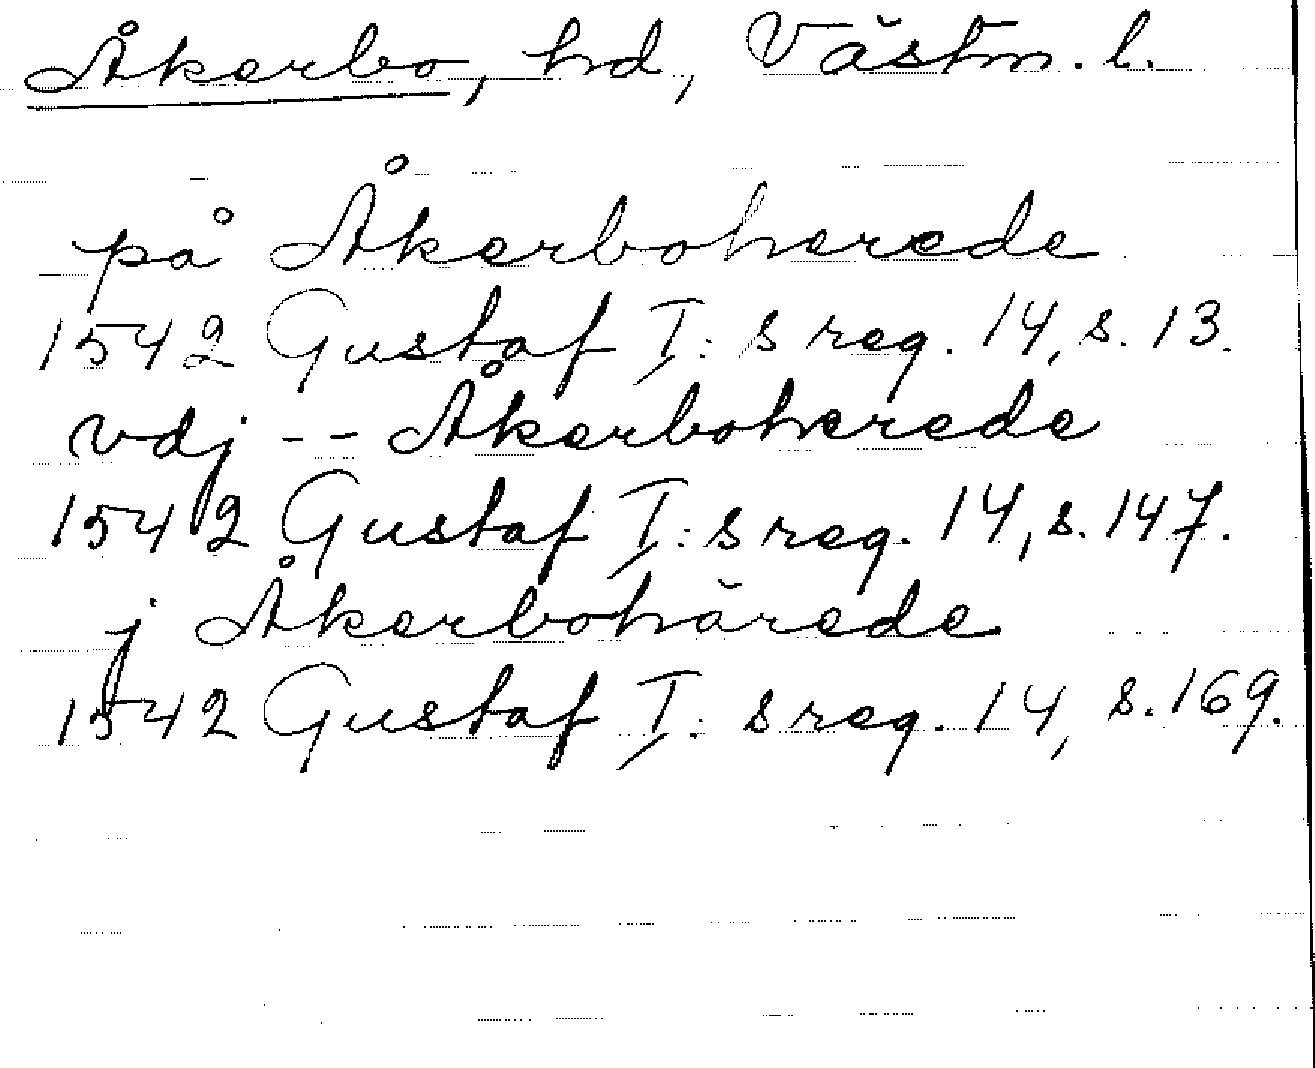 Åkerbo, hd, Västm. l.
på Åkerboherede
1542 Gustaf I:s reg. 14, s. 13.
vdj -- Åkerboherede
1542 Gustaf I:s reg. 14, s. 147.
j Åkerbohärede
1542 Gustaf I:s reg. 14, s. 169.